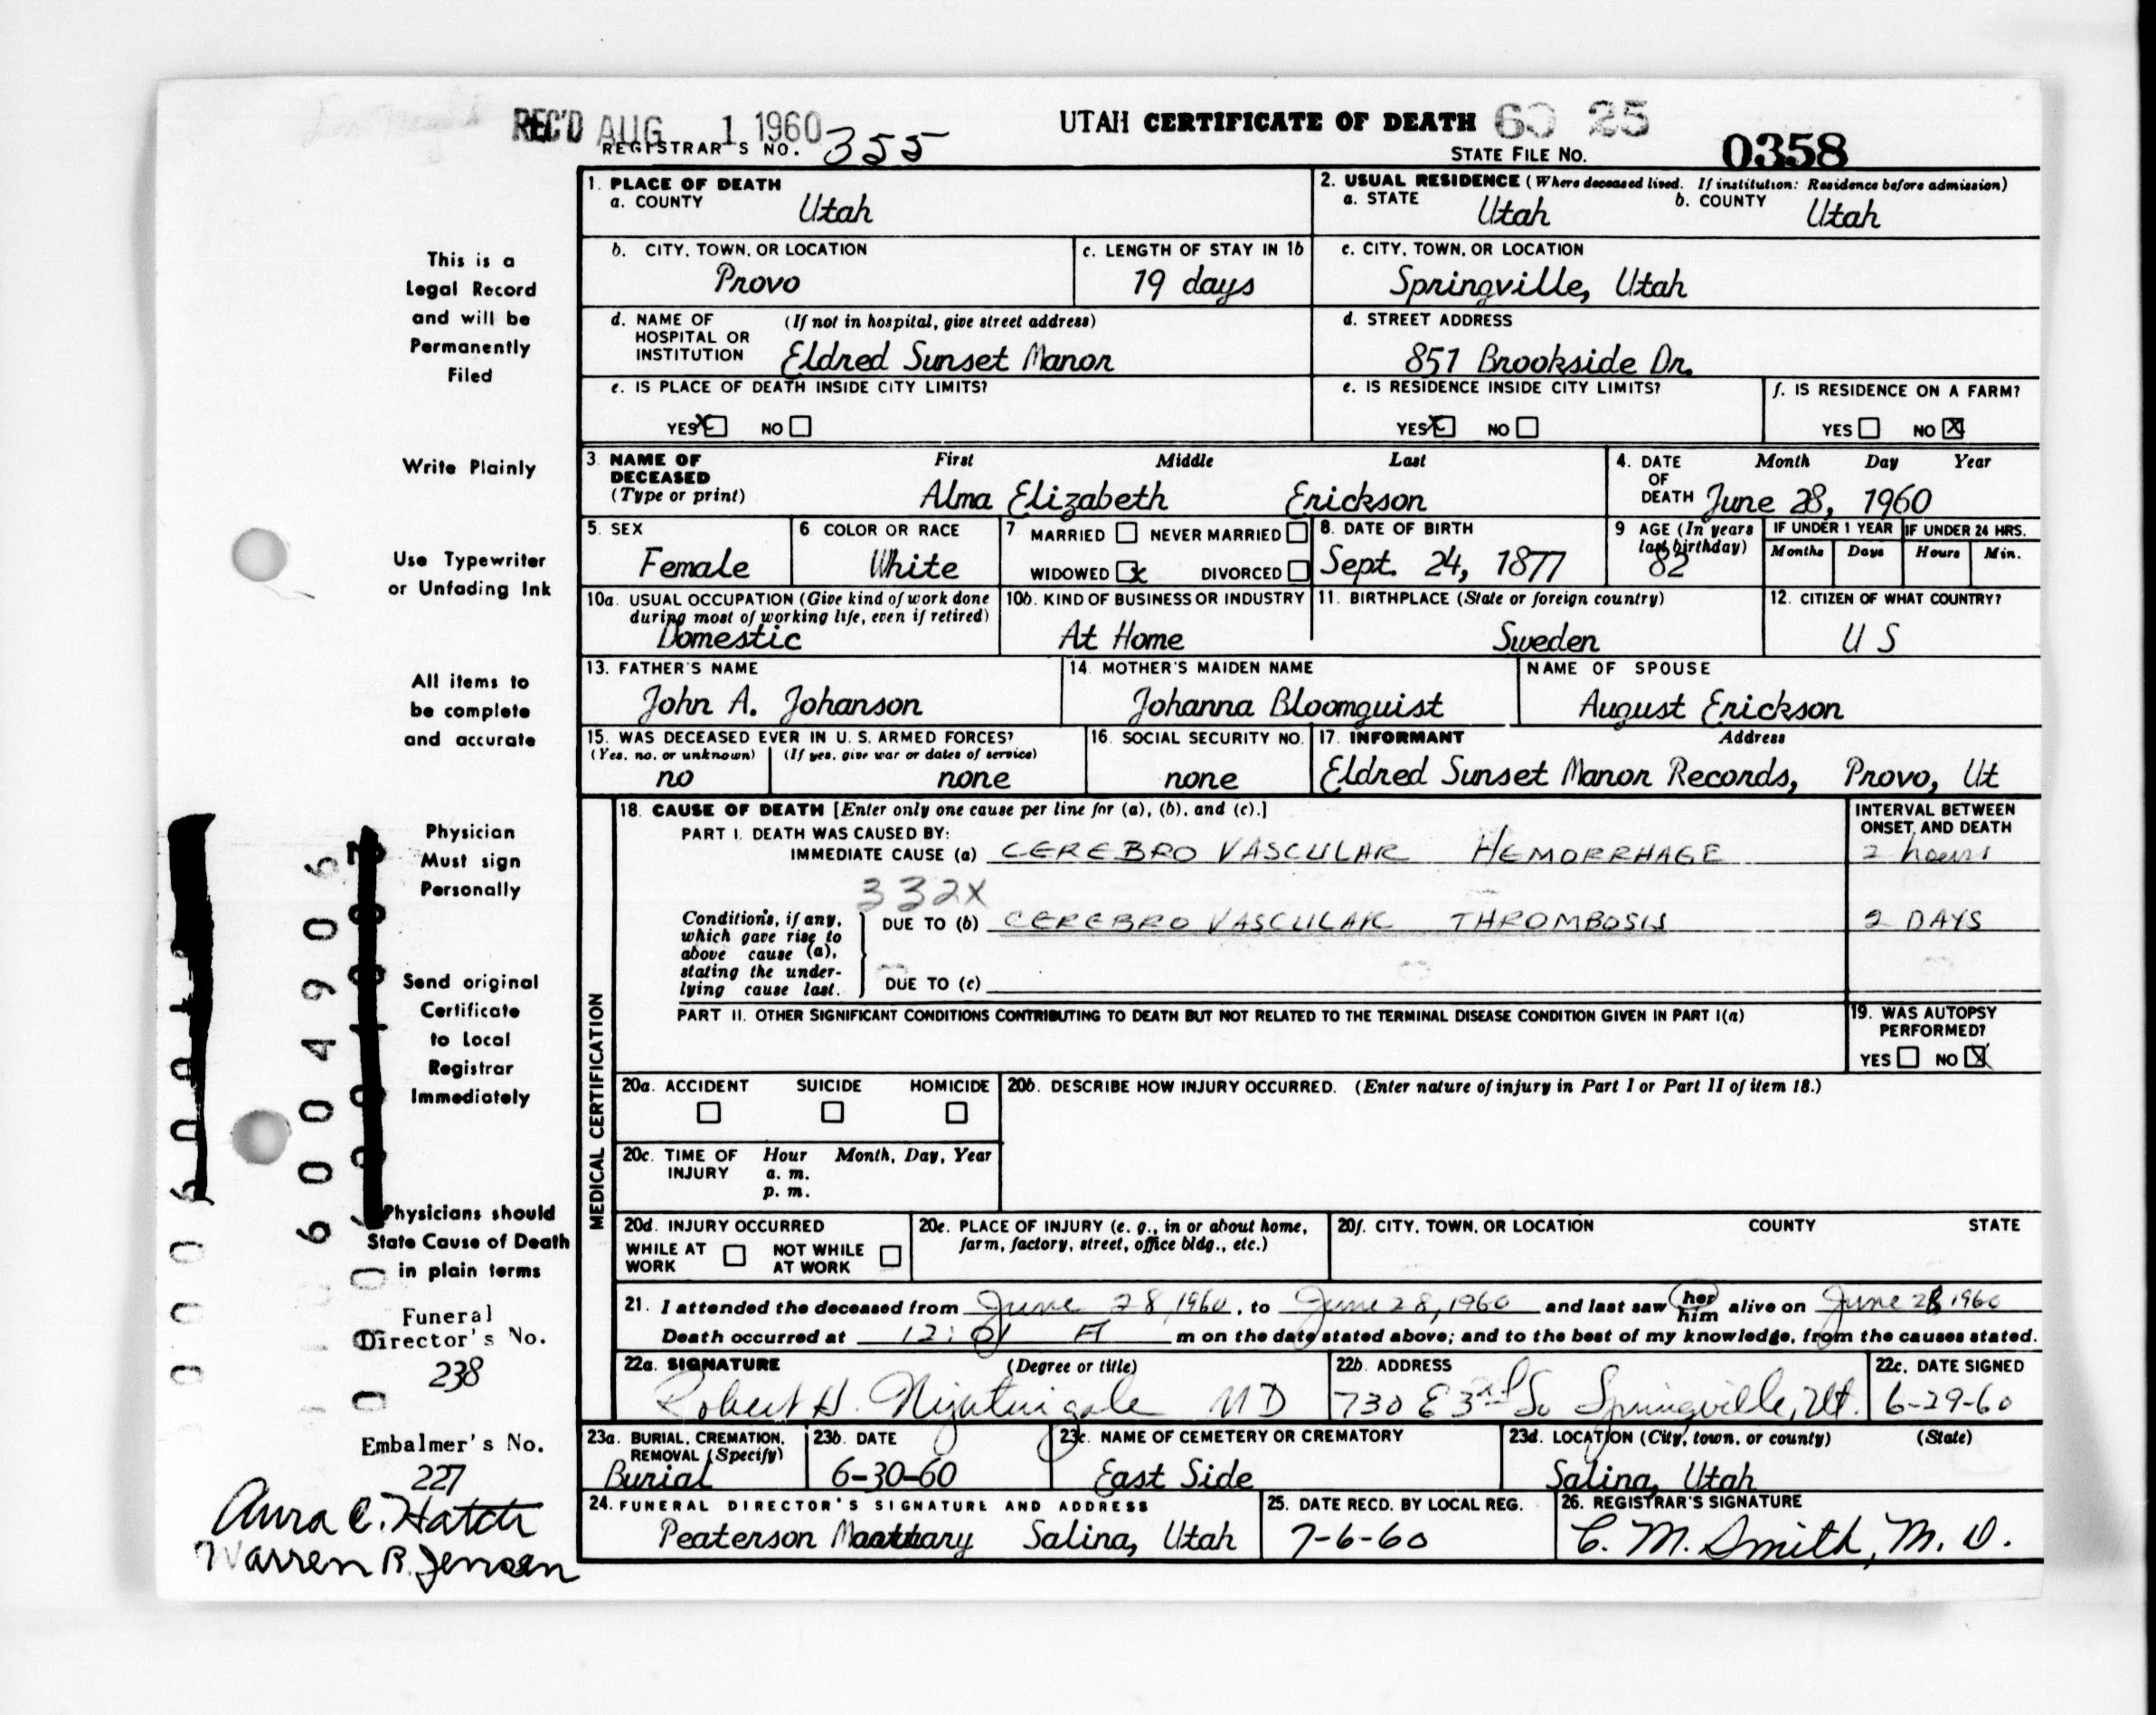 REC'D AUG 1 1960
UTAH CERTIFICATE OF DEATH 60 25
REGISTRAR'S NO. 355
STATE FILE NO. 0358
This is a
Legal Record
and will be
Permanently
Filed
Write Plainly
Use Typewriter
or Unfading Ink
All items to
be complete
and accurate
Physician
Must sign
Personally
Send original
Certificate
to Local
Registrar
Immediately
Physicians should
State Cause of Death
in plain terms
Funeral
Director's No.
238
Embalmer's No.
227
Aura C. Hatch
Warren B. Jensen
1. PLACE OF DEATH
a. COUNTY Utah
2. USUAL RESIDENCE (Where deceased lived. If institution: Residence before admission)
a. STATE Utah b. COUNTY Utah
b. CITY, TOWN, OR LOCATION
Provo
c. LENGTH OF STAY IN 1b
19 days
c. CITY, TOWN, OR LOCATION
Springville, Utah
d. NAME OF HOSPITAL OR INSTITUTION (If not in hospital, give street address)
Eldred Sunset Manor
d. STREET ADDRESS
851 Brookside Dr.
e. IS PLACE OF DEATH INSIDE CITY LIMITS?
YES X NO
e. IS RESIDENCE INSIDE CITY LIMITS?
YES X NO
f. IS RESIDENCE ON A FARM?
YES NO X
3. NAME OF DECEASED (Type or print)
First Middle Last
Alma Elizabeth Erickson
4. DATE OF DEATH Month Day Year
June 28, 1960
5. SEX
Female
6 COLOR OR RACE
White
7 MARRIED NEVER MARRIED
WIDOWED X DIVORCED
8. DATE OF BIRTH
Sept. 24, 1877
9 AGE (In years last birthday)
82
IF UNDER 1 YEAR IF UNDER 24 HRS.
Months Days Hours Min.
10a. USUAL OCCUPATION (Give kind of work done during most of working life, even if retired)
Domestic
10b. KIND OF BUSINESS OR INDUSTRY
At Home
11. BIRTHPLACE (State or foreign country)
Sweden
12. CITIZEN OF WHAT COUNTRY?
U S
13. FATHER'S NAME
John A. Johanson
14. MOTHER'S MAIDEN NAME
Johanna Bloomquist
NAME OF SPOUSE
August Erickson
15. WAS DECEASED EVER IN U. S. ARMED FORCES?
(Yes, no, or unknown) (If yes, give war or dates of service)
no none
16. SOCIAL SECURITY NO.
none
17. INFORMANT Address
Eldred Sunset Manor Records, Provo, Ut
MEDICAL CERTIFICATION
18. CAUSE OF DEATH [Enter only one cause per line for (a), (b), and (c).]
INTERVAL BETWEEN ONSET AND DEATH
PART I. DEATH WAS CAUSED BY:
IMMEDIATE CAUSE (a) CEREBRO VASCULAR HEMORRHAGE 2 hours
332X
Conditions, if any, which gave rise to above cause (a), stating the underlying cause last.
DUE TO (b) CEREBRO VASCULAR THROMBOSIS 2 DAYS
DUE TO (c)
PART II. OTHER SIGNIFICANT CONDITIONS CONTRIBUTING TO DEATH BUT NOT RELATED TO THE TERMINAL DISEASE CONDITION GIVEN IN PART I(a)
19. WAS AUTOPSY PERFORMED?
YES NO X
20a. ACCIDENT SUICIDE HOMICIDE
20b. DESCRIBE HOW INJURY OCCURRED. (Enter nature of injury in Part I or Part II of item 18.)
20c. TIME OF INJURY Hour Month, Day, Year
a. m.
p. m.
20d. INJURY OCCURRED
WHILE AT WORK NOT WHILE AT WORK
20e. PLACE OF INJURY (e. g., in or about home, farm, factory, street, office bldg., etc.)
20f. CITY, TOWN, OR LOCATION COUNTY STATE
21. I attended the deceased from June 28, 1960, to June 28, 1960 and last saw her him alive on June 28 1960
Death occurred at 12:01 A m on the date stated above; and to the best of my knowledge, from the causes stated.
22a. SIGNATURE (Degree or title)
Robert H. Nightingale MD
22b. ADDRESS
730 E 3rd So Springville, Ut.
22c. DATE SIGNED
6-29-60
23a. BURIAL, CREMATION, REMOVAL (Specify)
Burial
23b. DATE
6-30-60
23c. NAME OF CEMETERY OR CREMATORY
East Side
23d. LOCATION (City, town, or county) (State)
Salina, Utah
24. FUNERAL DIRECTOR'S SIGNATURE AND ADDRESS
Peaterson Salina, Utah
25. DATE RECD. BY LOCAL REG.
7-6-60
26. REGISTRAR'S SIGNATURE
C. M. Smith, M. D.